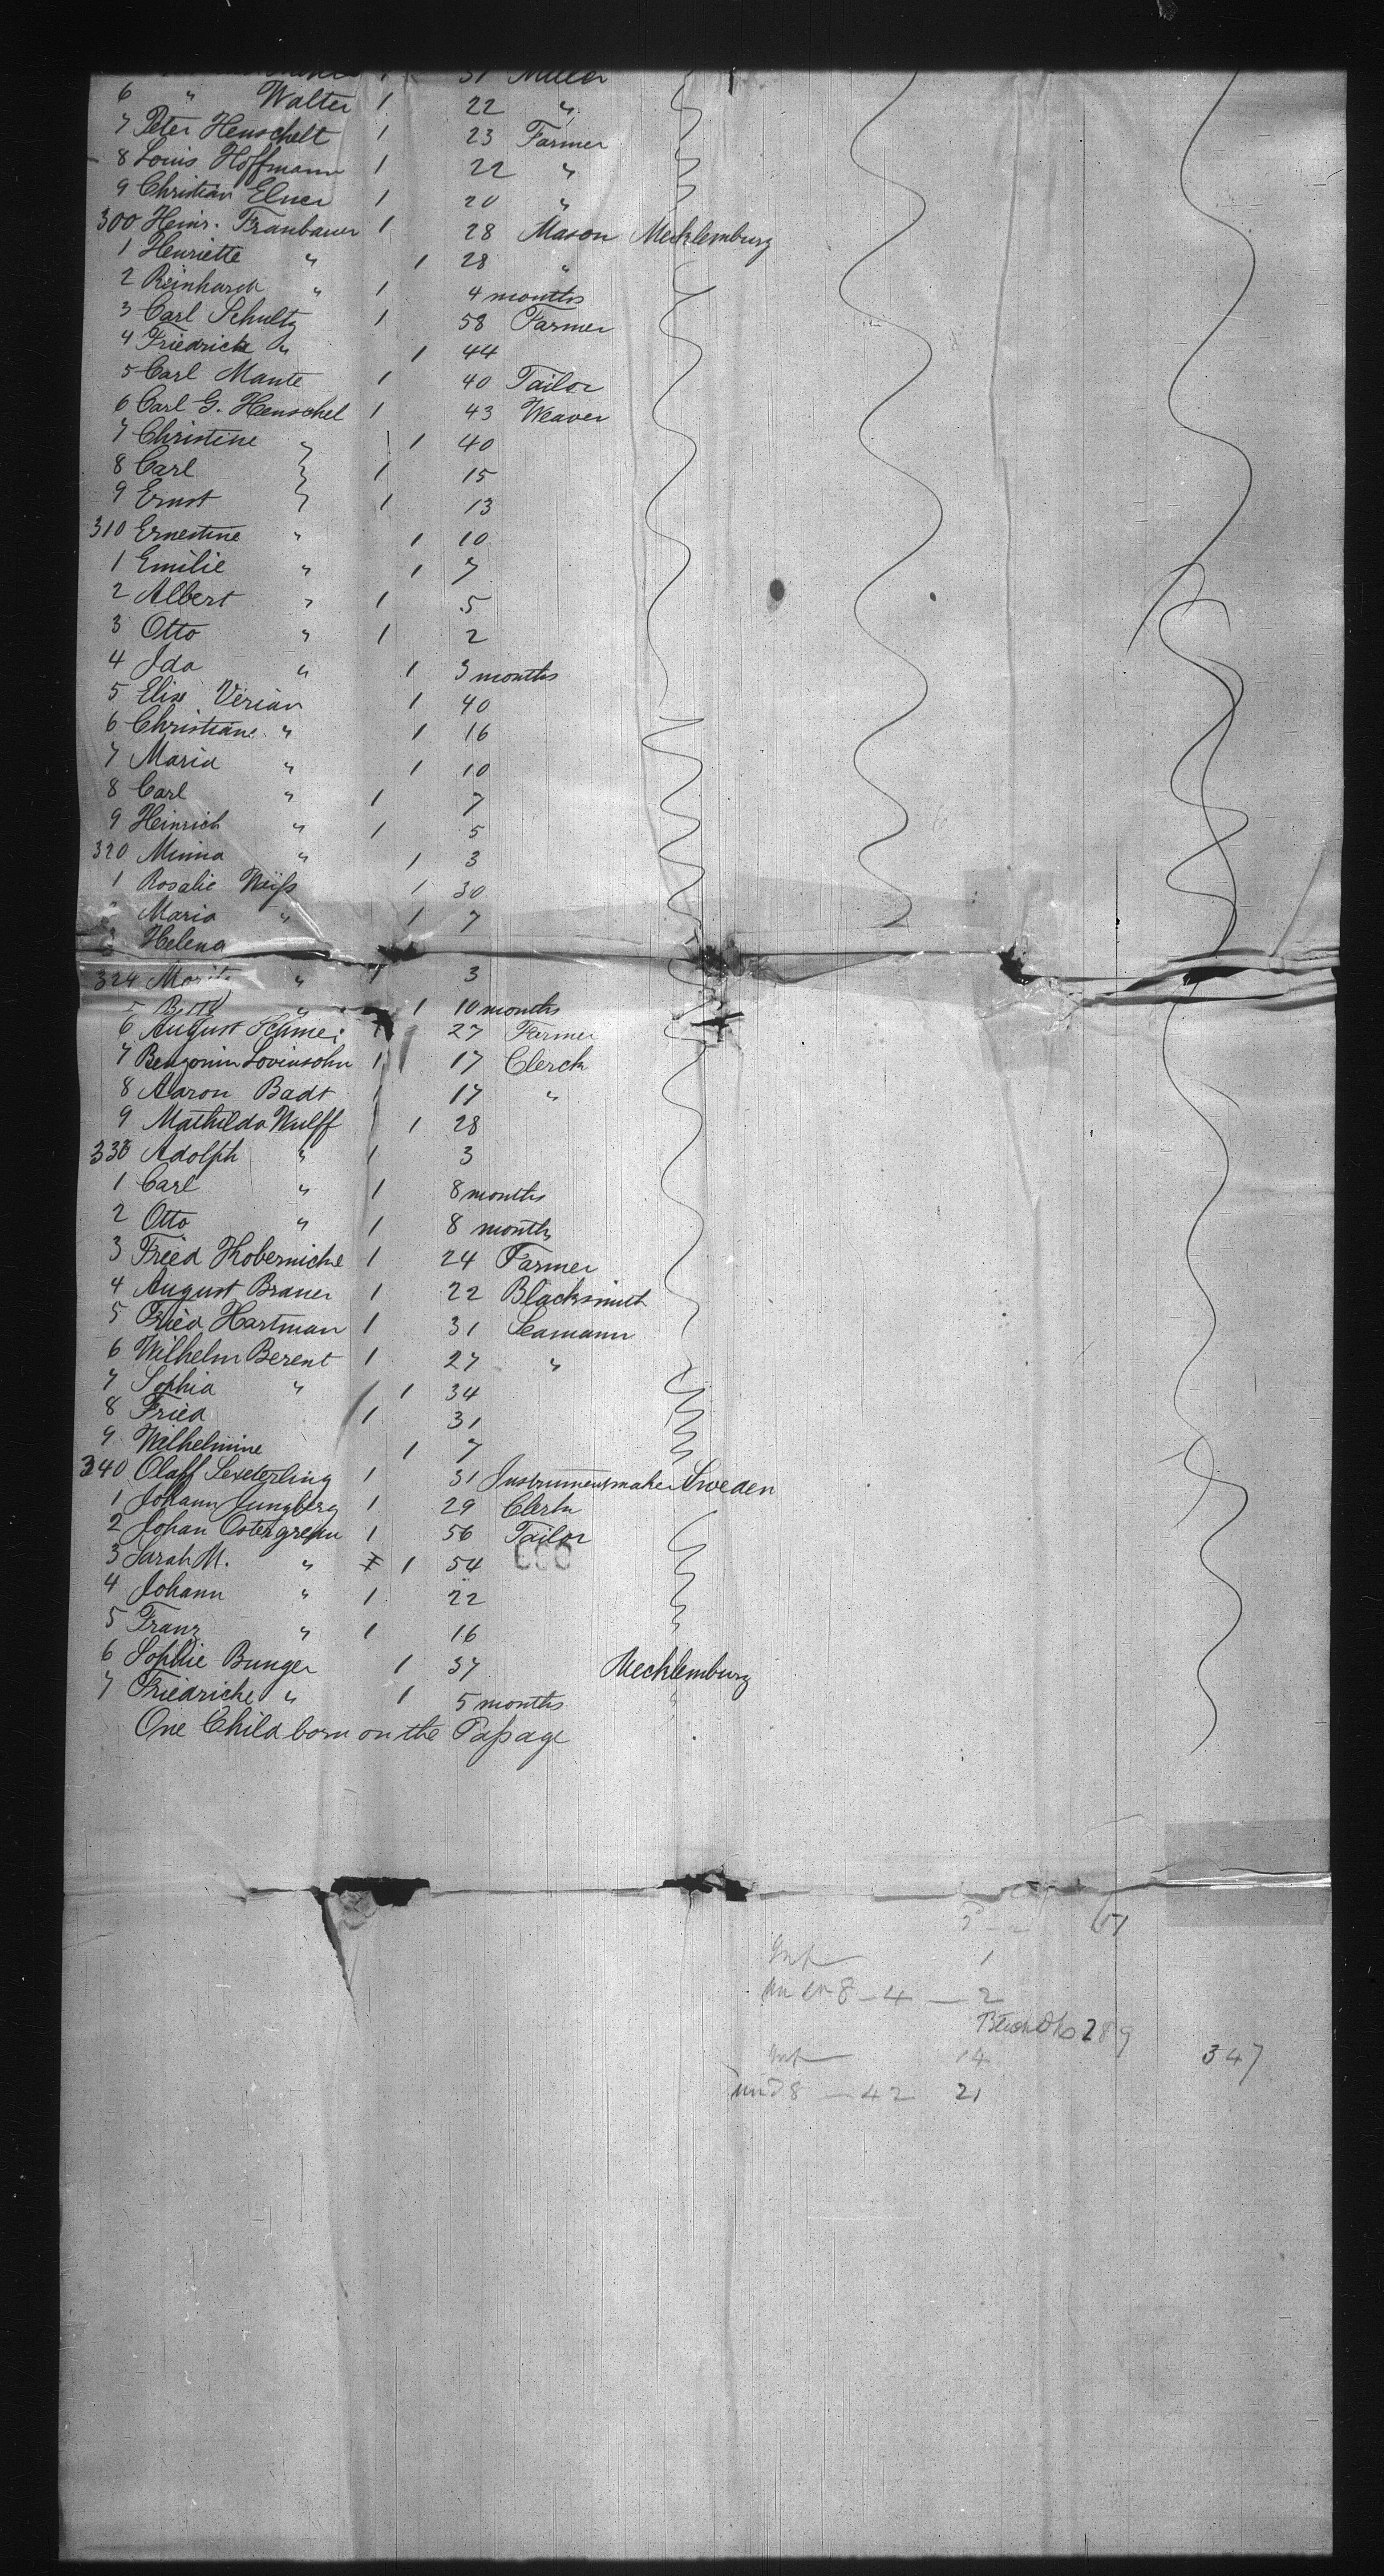 31 Miller
6 " Walter 1 22 "
7 Peter Henschelt 1 23 Farmer
8 Louis Hoffmann 1 22 "
9 Christian Elner 1 20 "
300 Heinr. Franbauer 1 28 Mason Mecklemburg
1 Henriette " 1 28 "
2 Reinhard " 1 4 months
3 Carl Schultz 1 58 Farmer
4 Friedrich " 1 44
5 Carl Mante 1 40 Tailor
6 Carl G. Henschel 1 43 Weaver
7 Christine " 1 40
8 Carl " 1 15
9 Ernst " 1 13
310 Ernestine " 1 10
1 Emilie " 1 7
2 Albert " 1 5
3 Otto " 1 2
4 Ida " 1 3 months
5 Elise Verian 1 40
6 Christiane " 1 16
7 Maria " 1 10
8 Carl " 1 7
9 Heinrich " 1 5
320 Minna " 1 3
1 Rosalie Weiss 1 30
Maria " 1 7
Helena
324 Moritz " 1 3
5 " 1 10 months
6 August 27 Farmer
7 Benjamin Lovinsohn 1 17 Clerck
8 Aaron Badt 1 17 "
9 Mathilda Wulff 1 28
330 Adolph " 1 3
1 Carl " 1 8 months
2 Otto " 1 8 months
3 Fried Koberniche 1 24 Farmer
4 August Brauer 1 22 Blacksmith
5 Fried Hartman 1 31 Seamann
6 Wilhelm Berent 1 27 "
7 Sophia " 1 34
8 Fried 1 31
9 Wilhelmine 1 7
340 Olaff 1 31 Instrumentmaker Sweden
1 Johann Jungberg 1 29 Clerk
2 Johan Ostergrenn 1 56 Tailor
3 Sarah M. " 1 54
4 Johann " 1 22
5 Franz " 1 16
6 Sophie Bunger 1 37 Mecklemburg
7 Friedriche " 1 5 months "
One Child born on the Passage
Inf 1
un 8 - 4 - 2
289
Inf 14 347
und 8 - 42 21